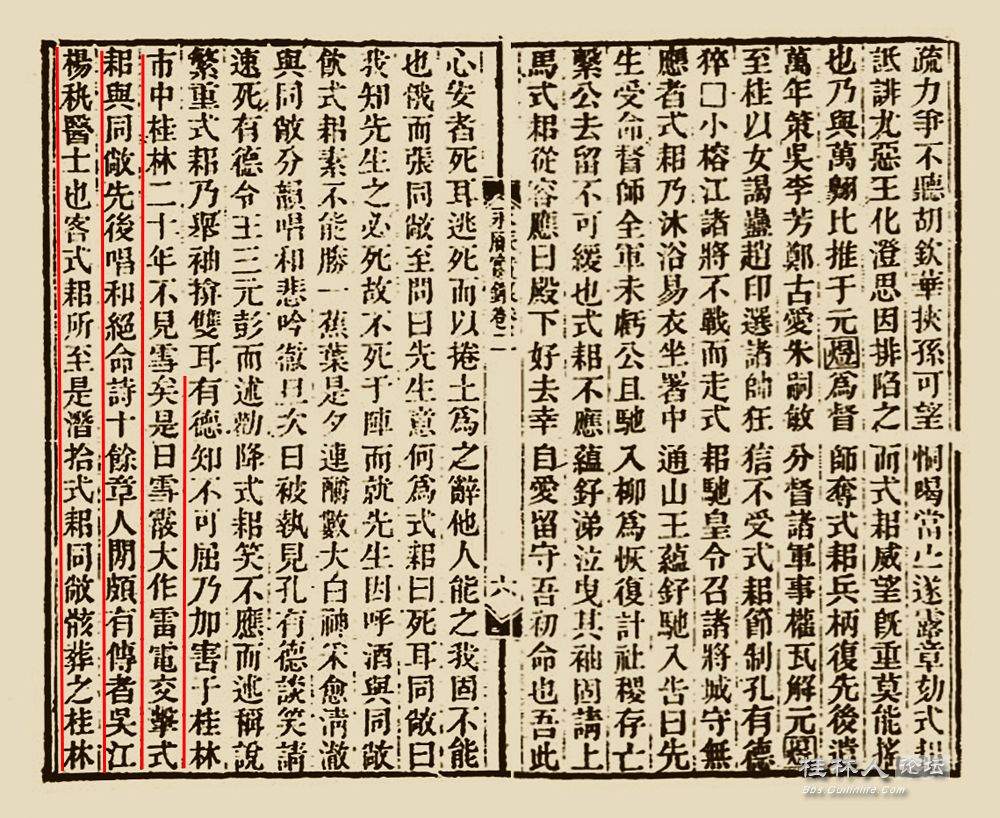 疏力爭不聽胡欽華挾孫可望恫喝當止遂露章劾式耜
詆誹尤惡王化澄思因排陷之而式耜威望旣重莫能搖
也乃與萬翺比推于元燁爲督師奪式耜兵柄復先後潰
萬年策吳李芳鄭古愛朱嗣敏分督諸軍事權瓦解元燁
至桂以女謁蠱趙印選諸帥狂信不受式耜節制孔有德
猝□小榕江諸將不戰而走式耜馳皇令召諸將城守無
應者式耜乃沐浴易衣坐署中通山王蘊釪馳入告曰先
生受命督師全軍未虧公且馳入柳爲恢復計社稷存亡
繫公去留不可緩也式耜不應蘊釪涕泣曳其袖固請上
馬式耜從容應曰殿下好去幸自愛留守吾初命也吾此
卷二
六
心安者死耳逃死而以捲土爲之辭他人能之我固不能
也俄而張同敞至問曰先生意何爲式耜曰死耳同敞曰
我知先生之必死故不死于陣而就先生因呼酒與同敞
飲式耜素不能勝一蕉葉是夕連酹數大白神采愈淸澈
與同敞分韻唱和悲吟徹旦次日被執見孔有德談笑請
速死有德令王三元彭而述勸降式耜笑不應而述稱說
繁重式耜乃舉袖揜雙耳有德知不可屈乃加害于桂林
市中桂林二十年不見雪矣是日雪霰大作雷電交擊式
耜與同敞先後唱和絕命詩十餘章人閒頗有傳者吳江
楊秇醫士也客式耜所至是潛拾式耜同敞骸葬之桂林
桂林人论坛
Bbs.Guilinlife.Com